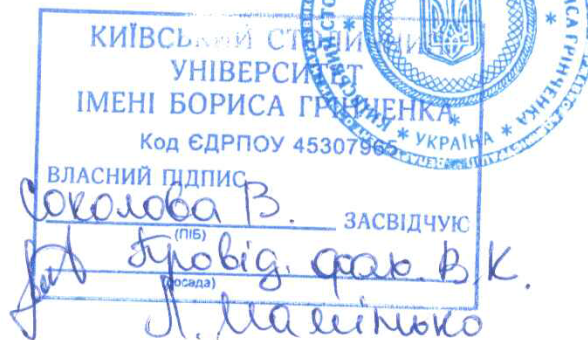 КИЇВСЬКИЙ СТОЛИЧНИЙ
УНІВЕРСИТЕТ
ІМЕНІ БОРИСА ГРІНЧЕНКА
Код ЄДРПОУ 45307965
ВЛАСНИЙ ПІДПИС
Соколова В. ЗАСВІДЧУЮ
(ПІБ)
Провід. фах. В.К.
(посада)
* УКРАЇНА *